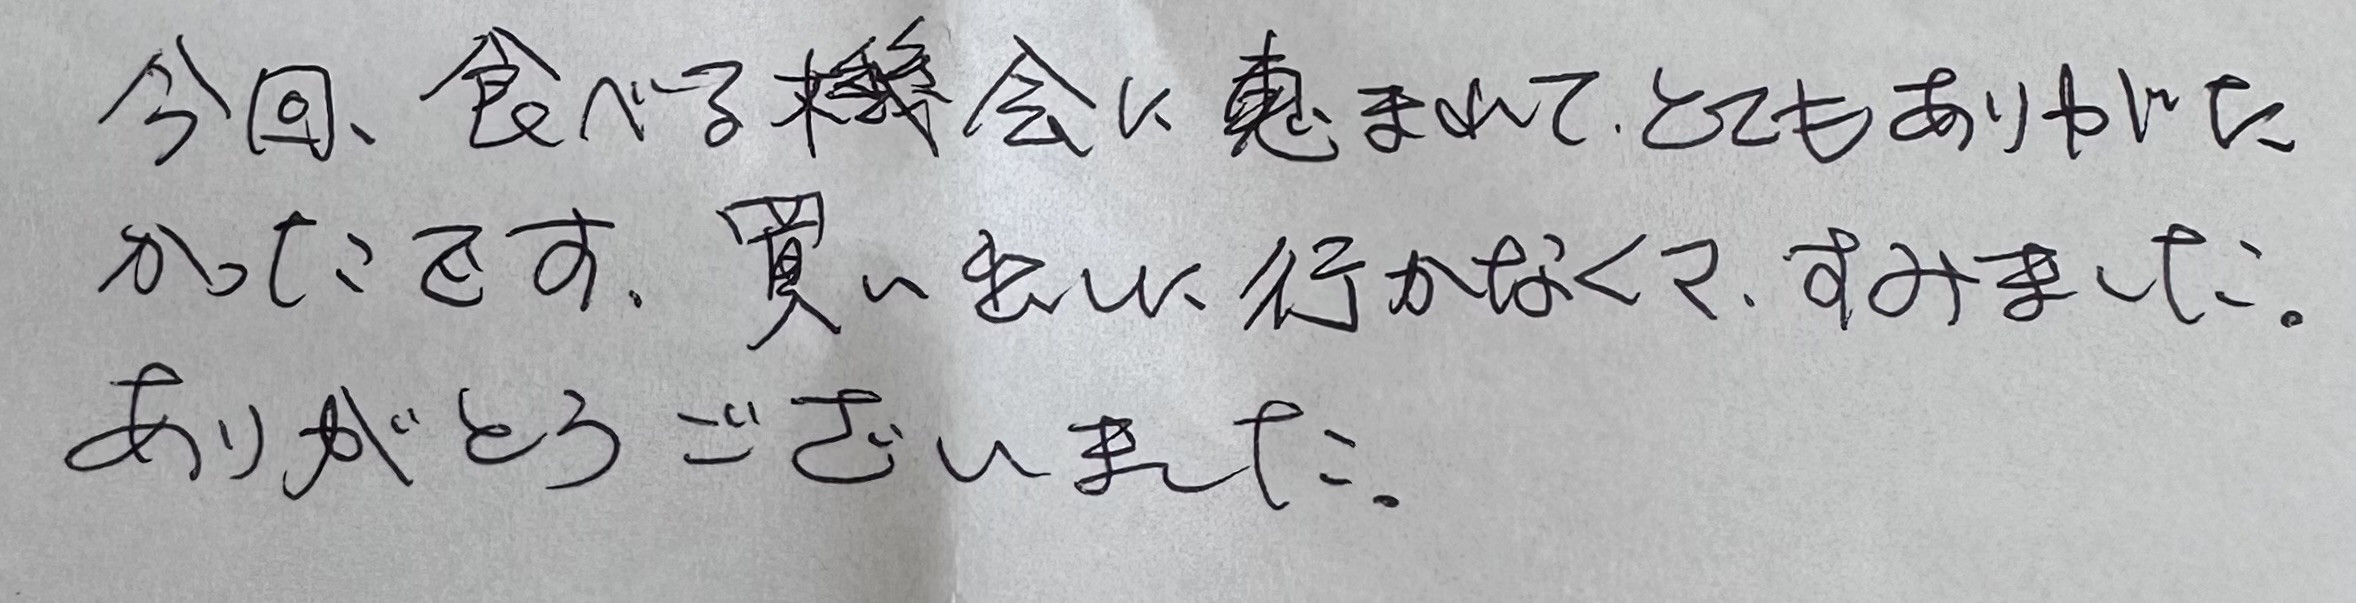 今回、食べる機会に恵まれて、とてもありがた
かったです。買い出しに行かなくて、すみました。
ありがとうございました。